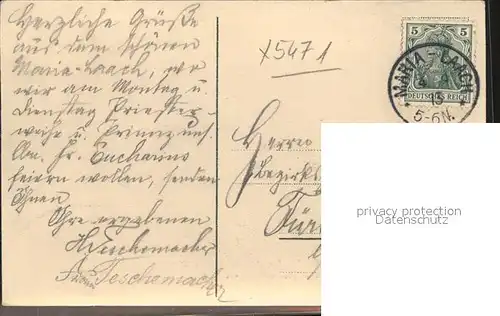 Herzliche Grüße
aus dem schönen
Maria-Laach, wo
wir am Montag u.
Dienstag Priester-
weihe u. Primiz uns.
Fr.
feiern wollen, senden
Ihnen
Ihre ergebenen
H. Teschemacher
Teschemacher
x5471
5 5
DEUTSCHES REICH
MARIA-LAACH
13
5-6N.
Herrn
Bezirks
privacy protection
Datenschutz